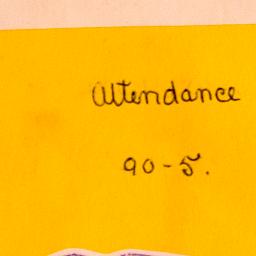 Attendance
90-5.